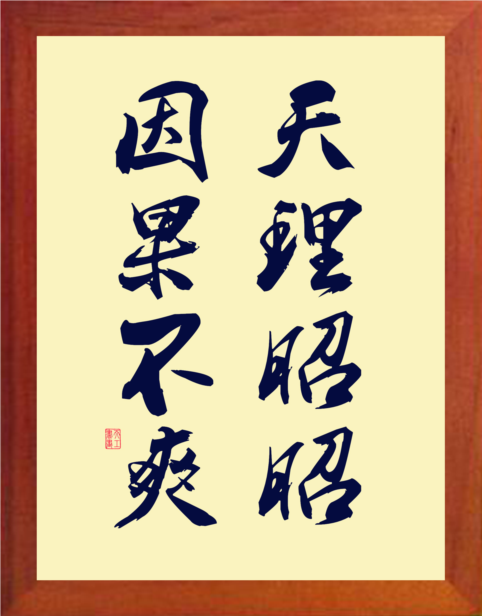 天理昭昭
因果不爽